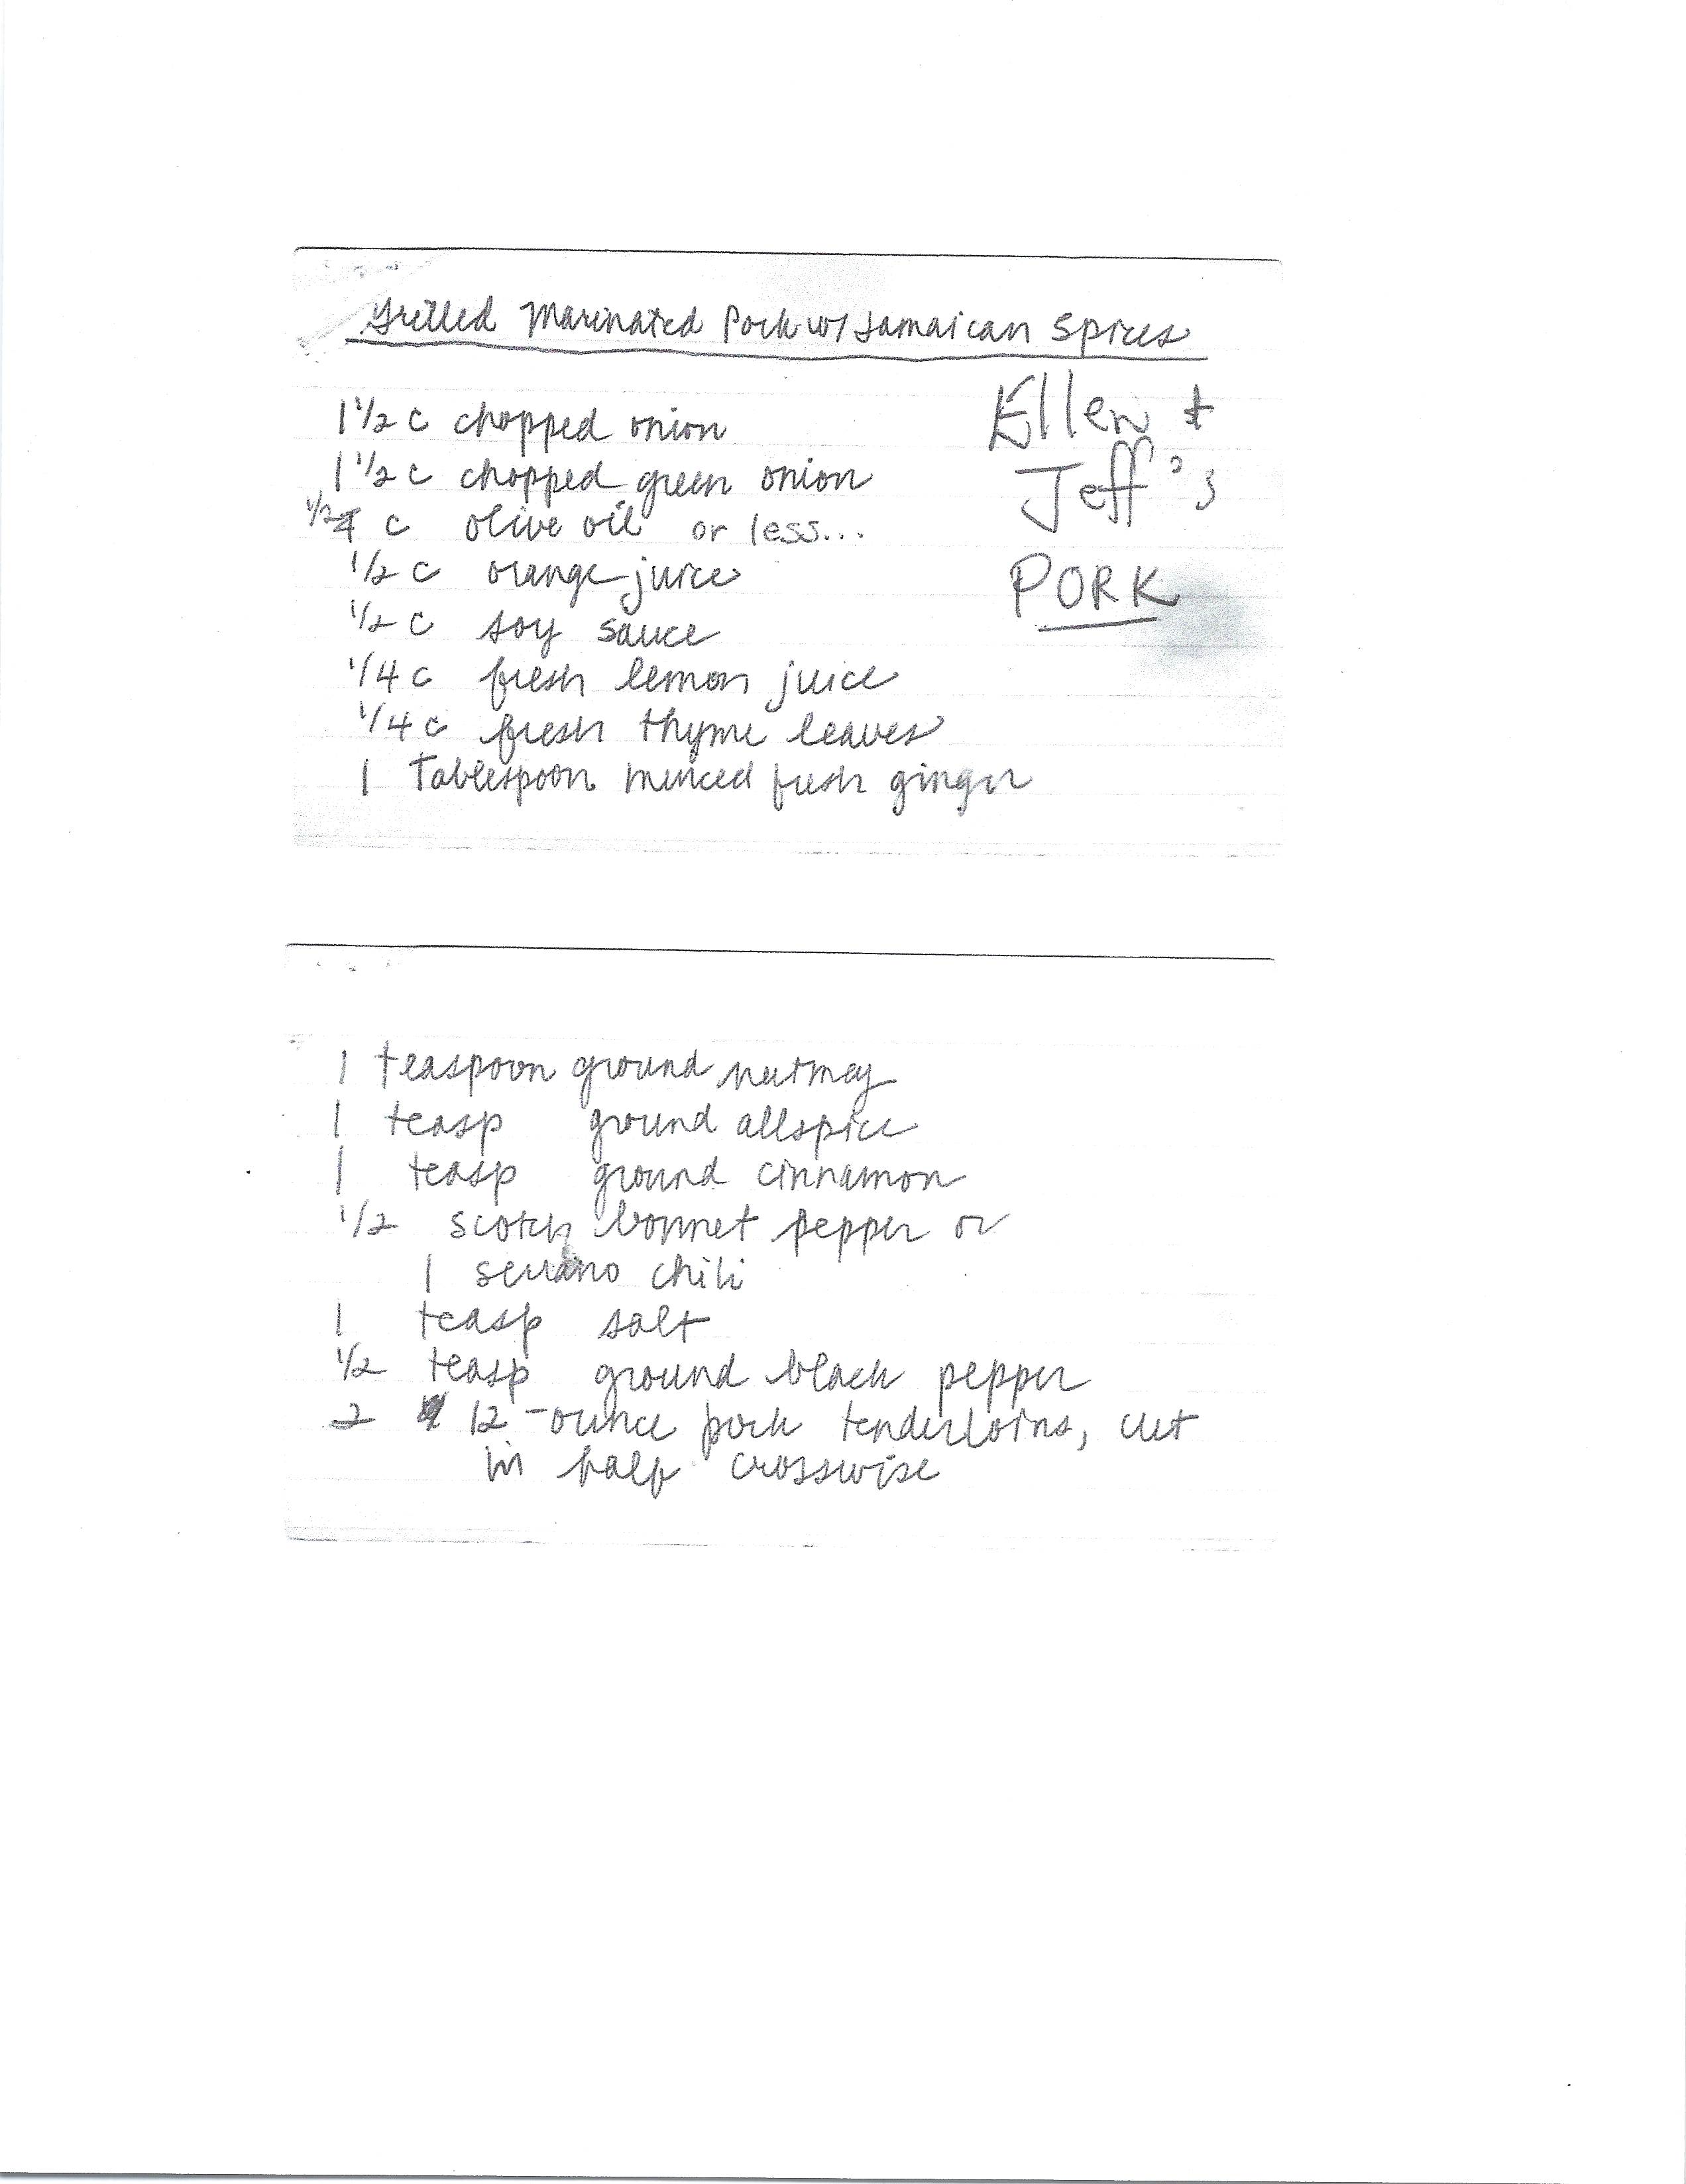 Grilled Marinated Pork w/ Jamaican Spices
Ellen &
Jeff's
PORK
1 1/2 c chopped onion
1 1/2 c chopped green onion
1/2 c olive oil or less...
1/2 c orange juice
1/2 c soy sauce
1/4 c fresh lemon juice
1/4 c fresh thyme leaves
1 Tablespoon minced fresh ginger
1 teaspoon ground nutmeg
1 teasp ground allspice
1 teasp ground cinnamon
1/2 scotch bonnet pepper or
1 serrano chili
1 teasp salt
1/2 teasp ground black pepper
2 12-ounce pork tenderloins, cut
in half crosswise